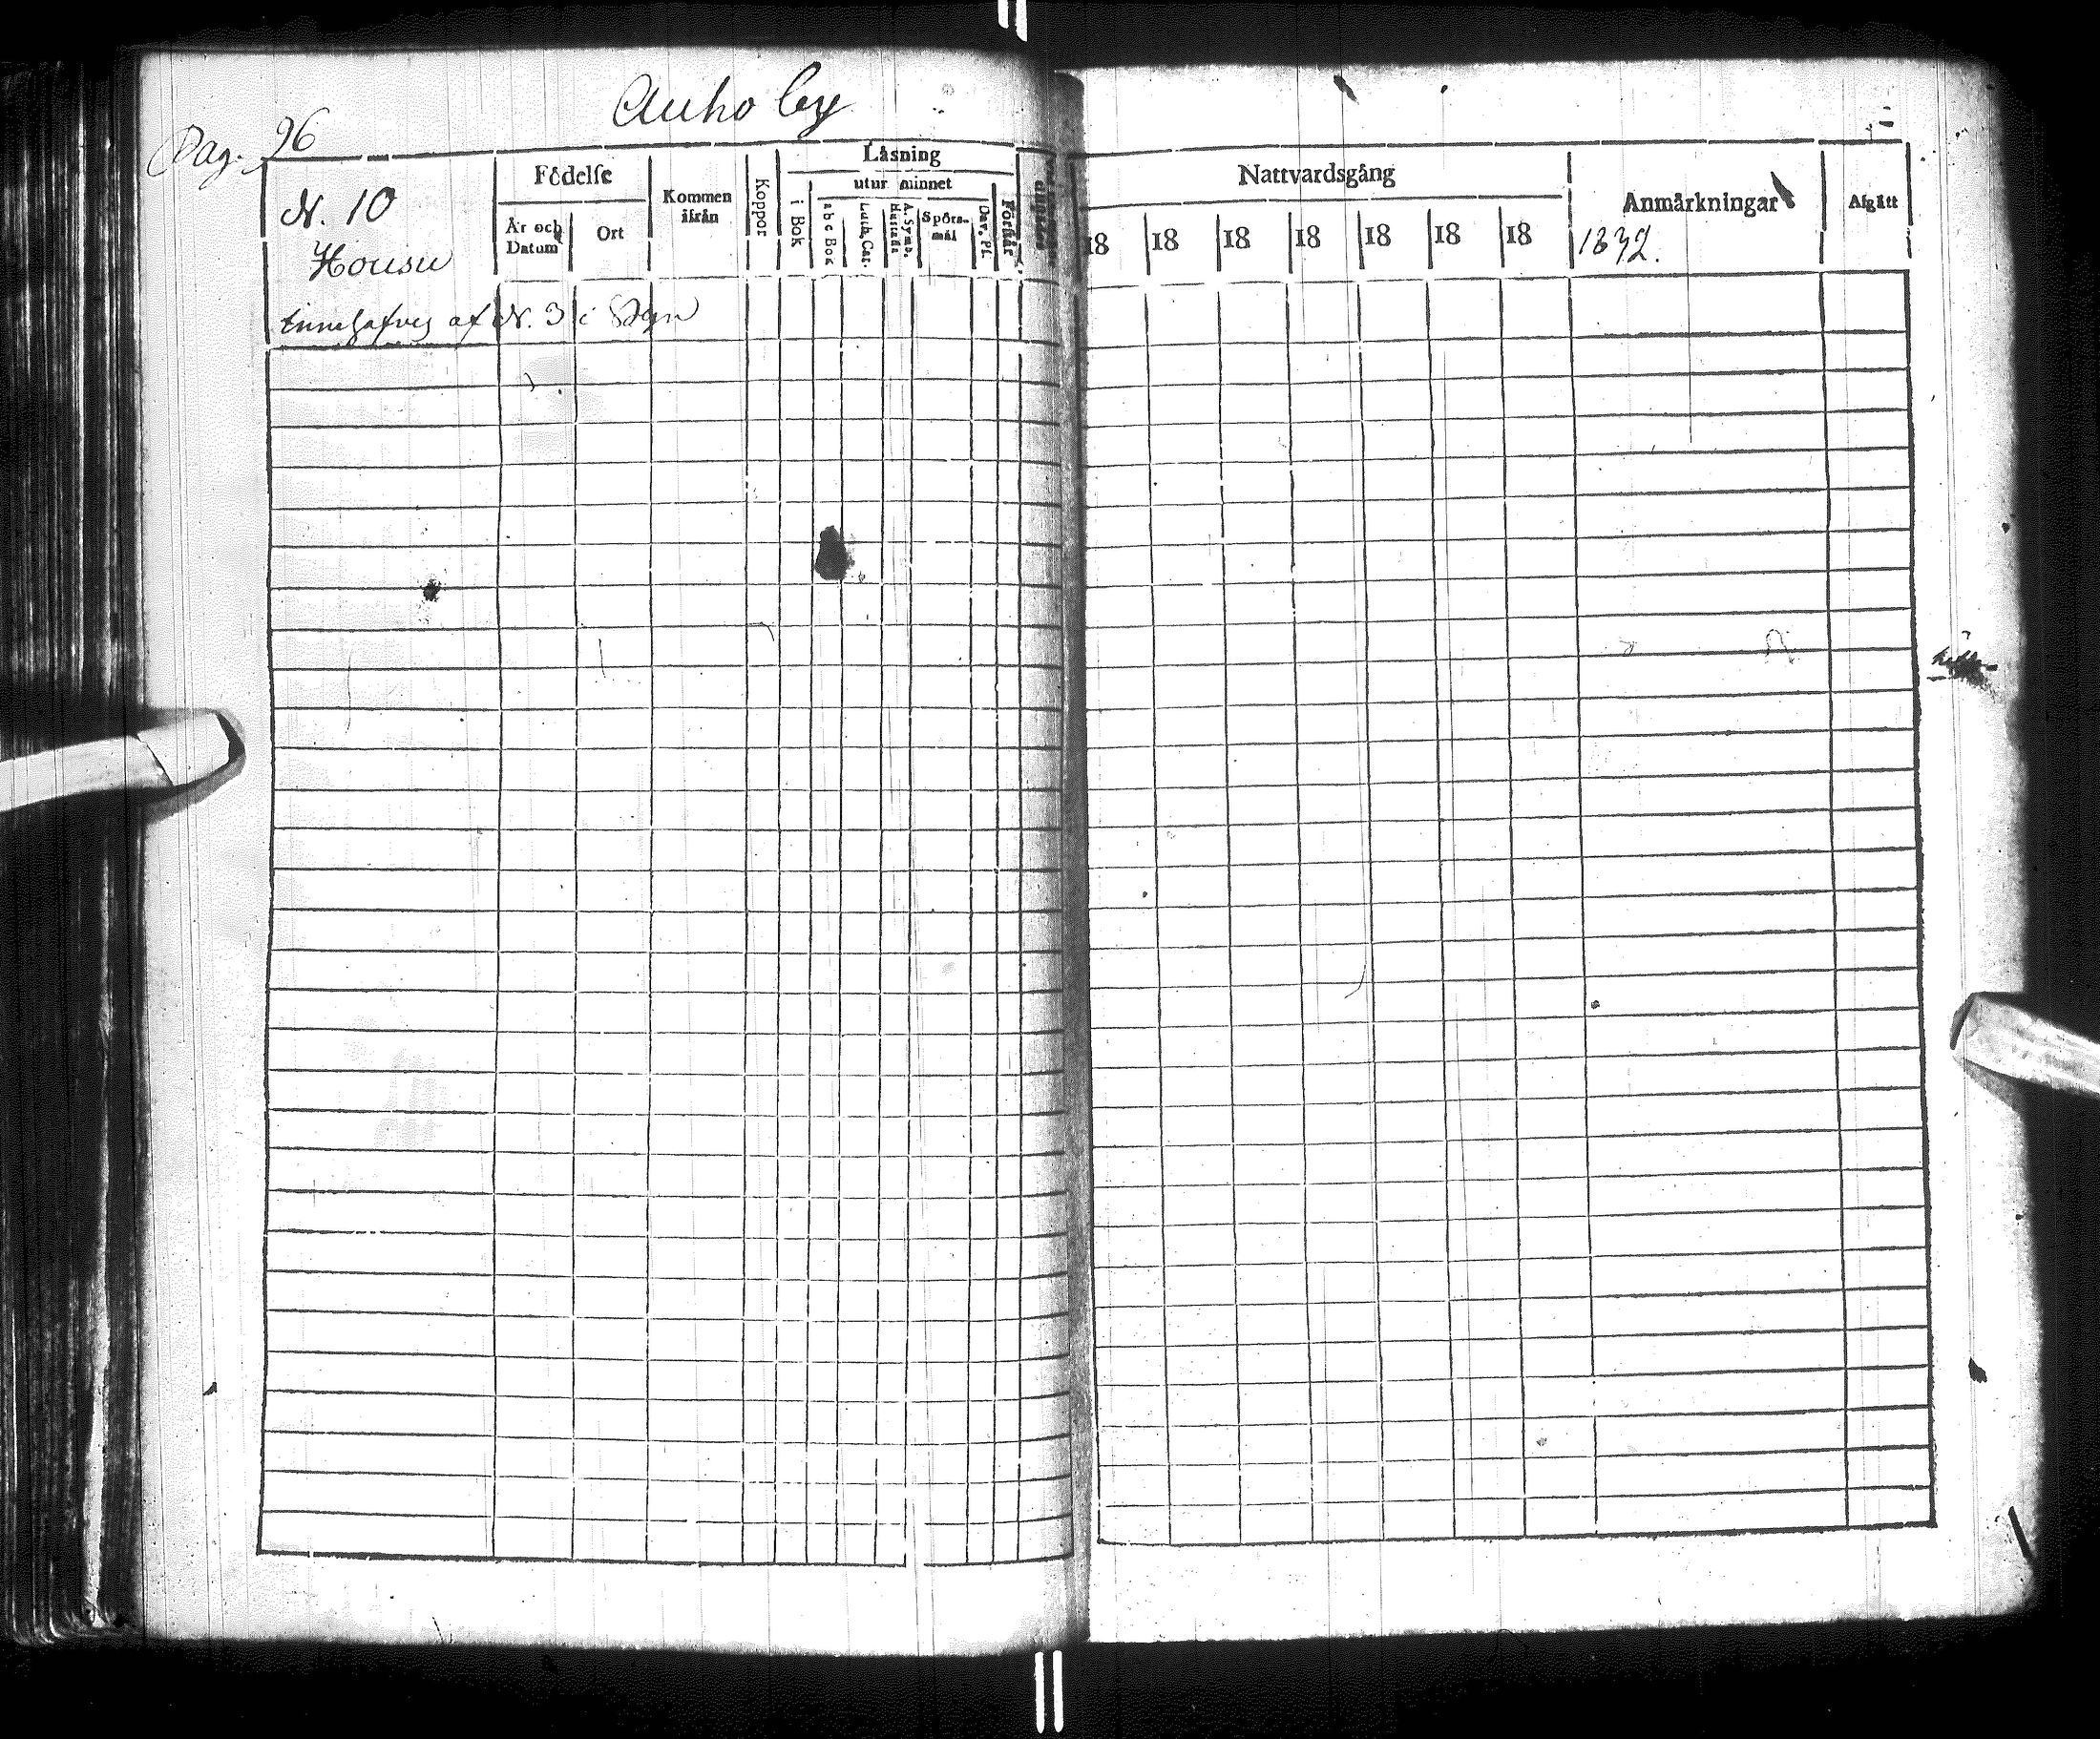 Pag. 96
Auho by
N. 10
Housu
Födelse
År och Datum
Ort
Kommen ifrån
Koppor
Läsning
i Bok
utur minnet
a b c Bok
Luth. Cat.
A. Symb. Hustafla
Spörs-mål
Dav. Ps.
Förhör
Nattvardsgång
18 18 18 18 18 18 18
Anmärkningar
1832.
Afgått
innehafves af N. 3 i Byn